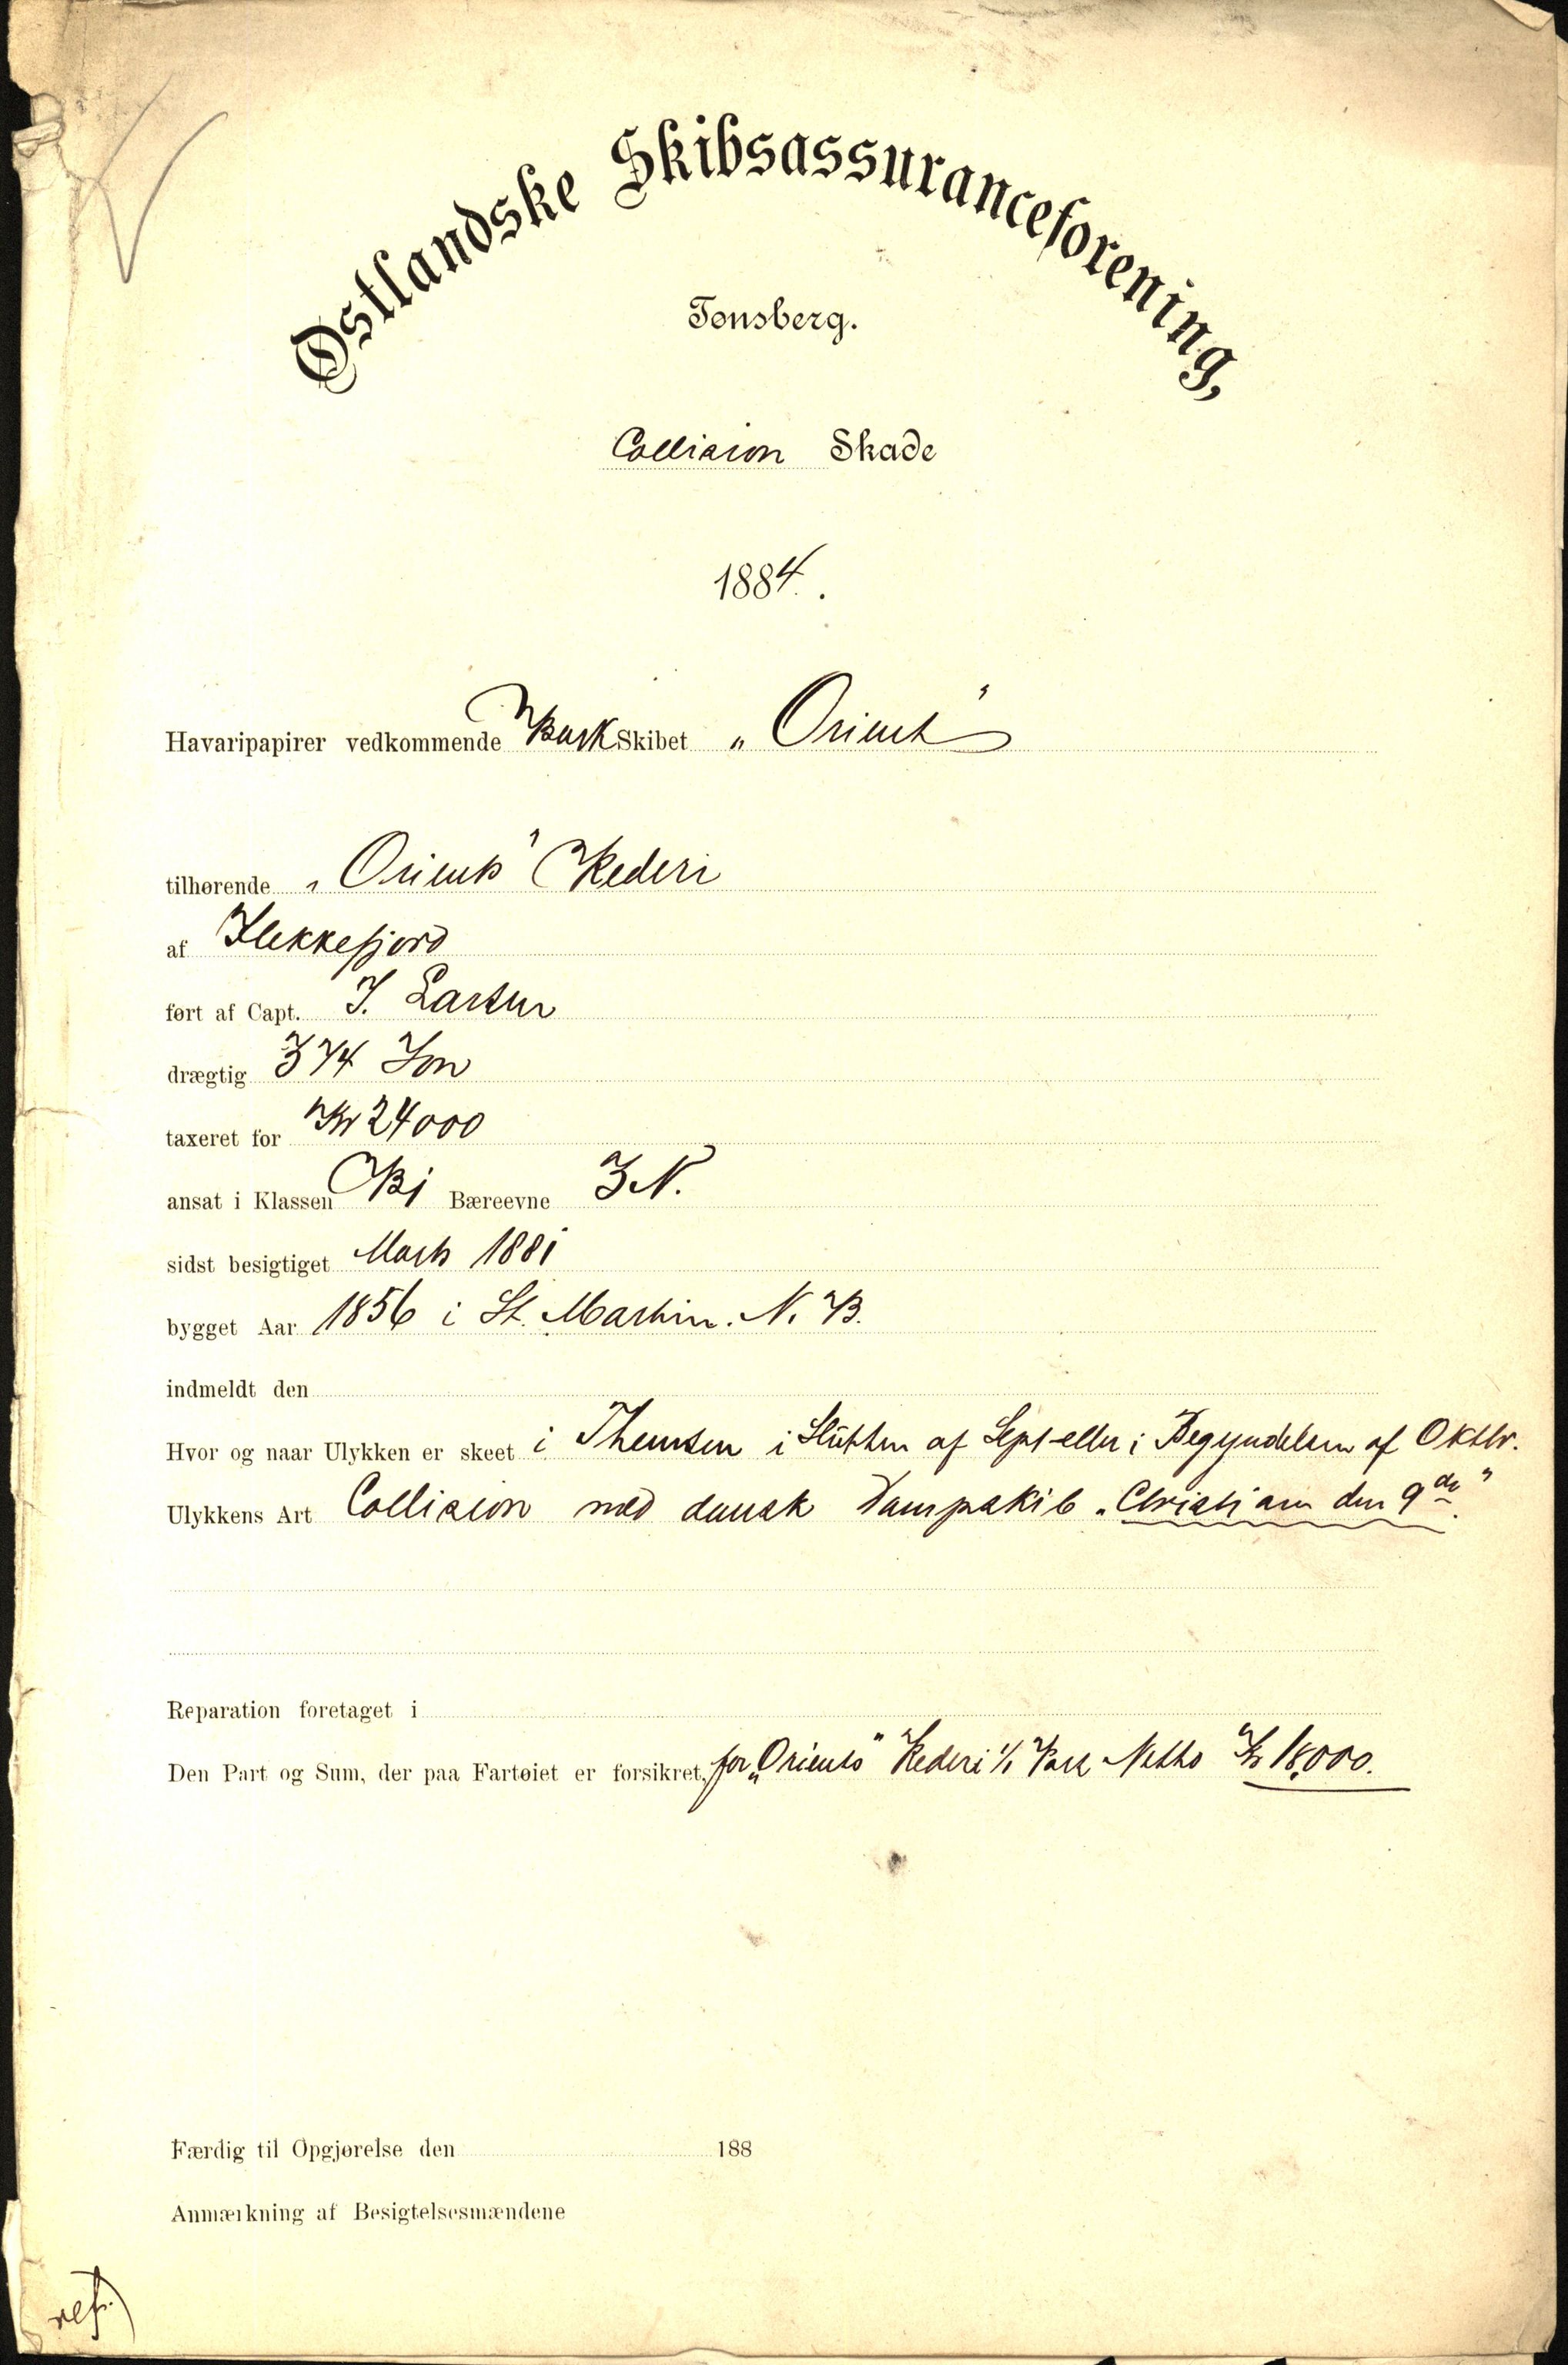 Østlandske Skibsassuranceforening,
Tønsberg.
Collision Skade
1884.
Havaripapirer vedkommende Bark Skibet „Orient"
tilhørende „Orients" Rederi
af Flekkefjord
ført af Capt. J. Larsen
drægtig 374 Ton
taxeret for Kr 24000
ansat i Klassen Bj Bæreevne 3 N.
sidst besigtiget Marts 1881
bygget Aar 1856 i St. Martin. N. B.
indmeldt den
Hvor og naar Ulykken er skeet i Themsen i Slutten af Sept eller i Begyndelsen af Oktbr.
Ulykkens Art Collision med dansk Dampskib „Christian den 9de"
Reparation foretaget i
Den Part og Sum, der paa Fartøiet er forsikret, for „Orients" Rederi 1/1 Part Netto Kr 18,000.
Færdig til Opgjørelse den 188
Anmærkning af Besigtelsesmændene